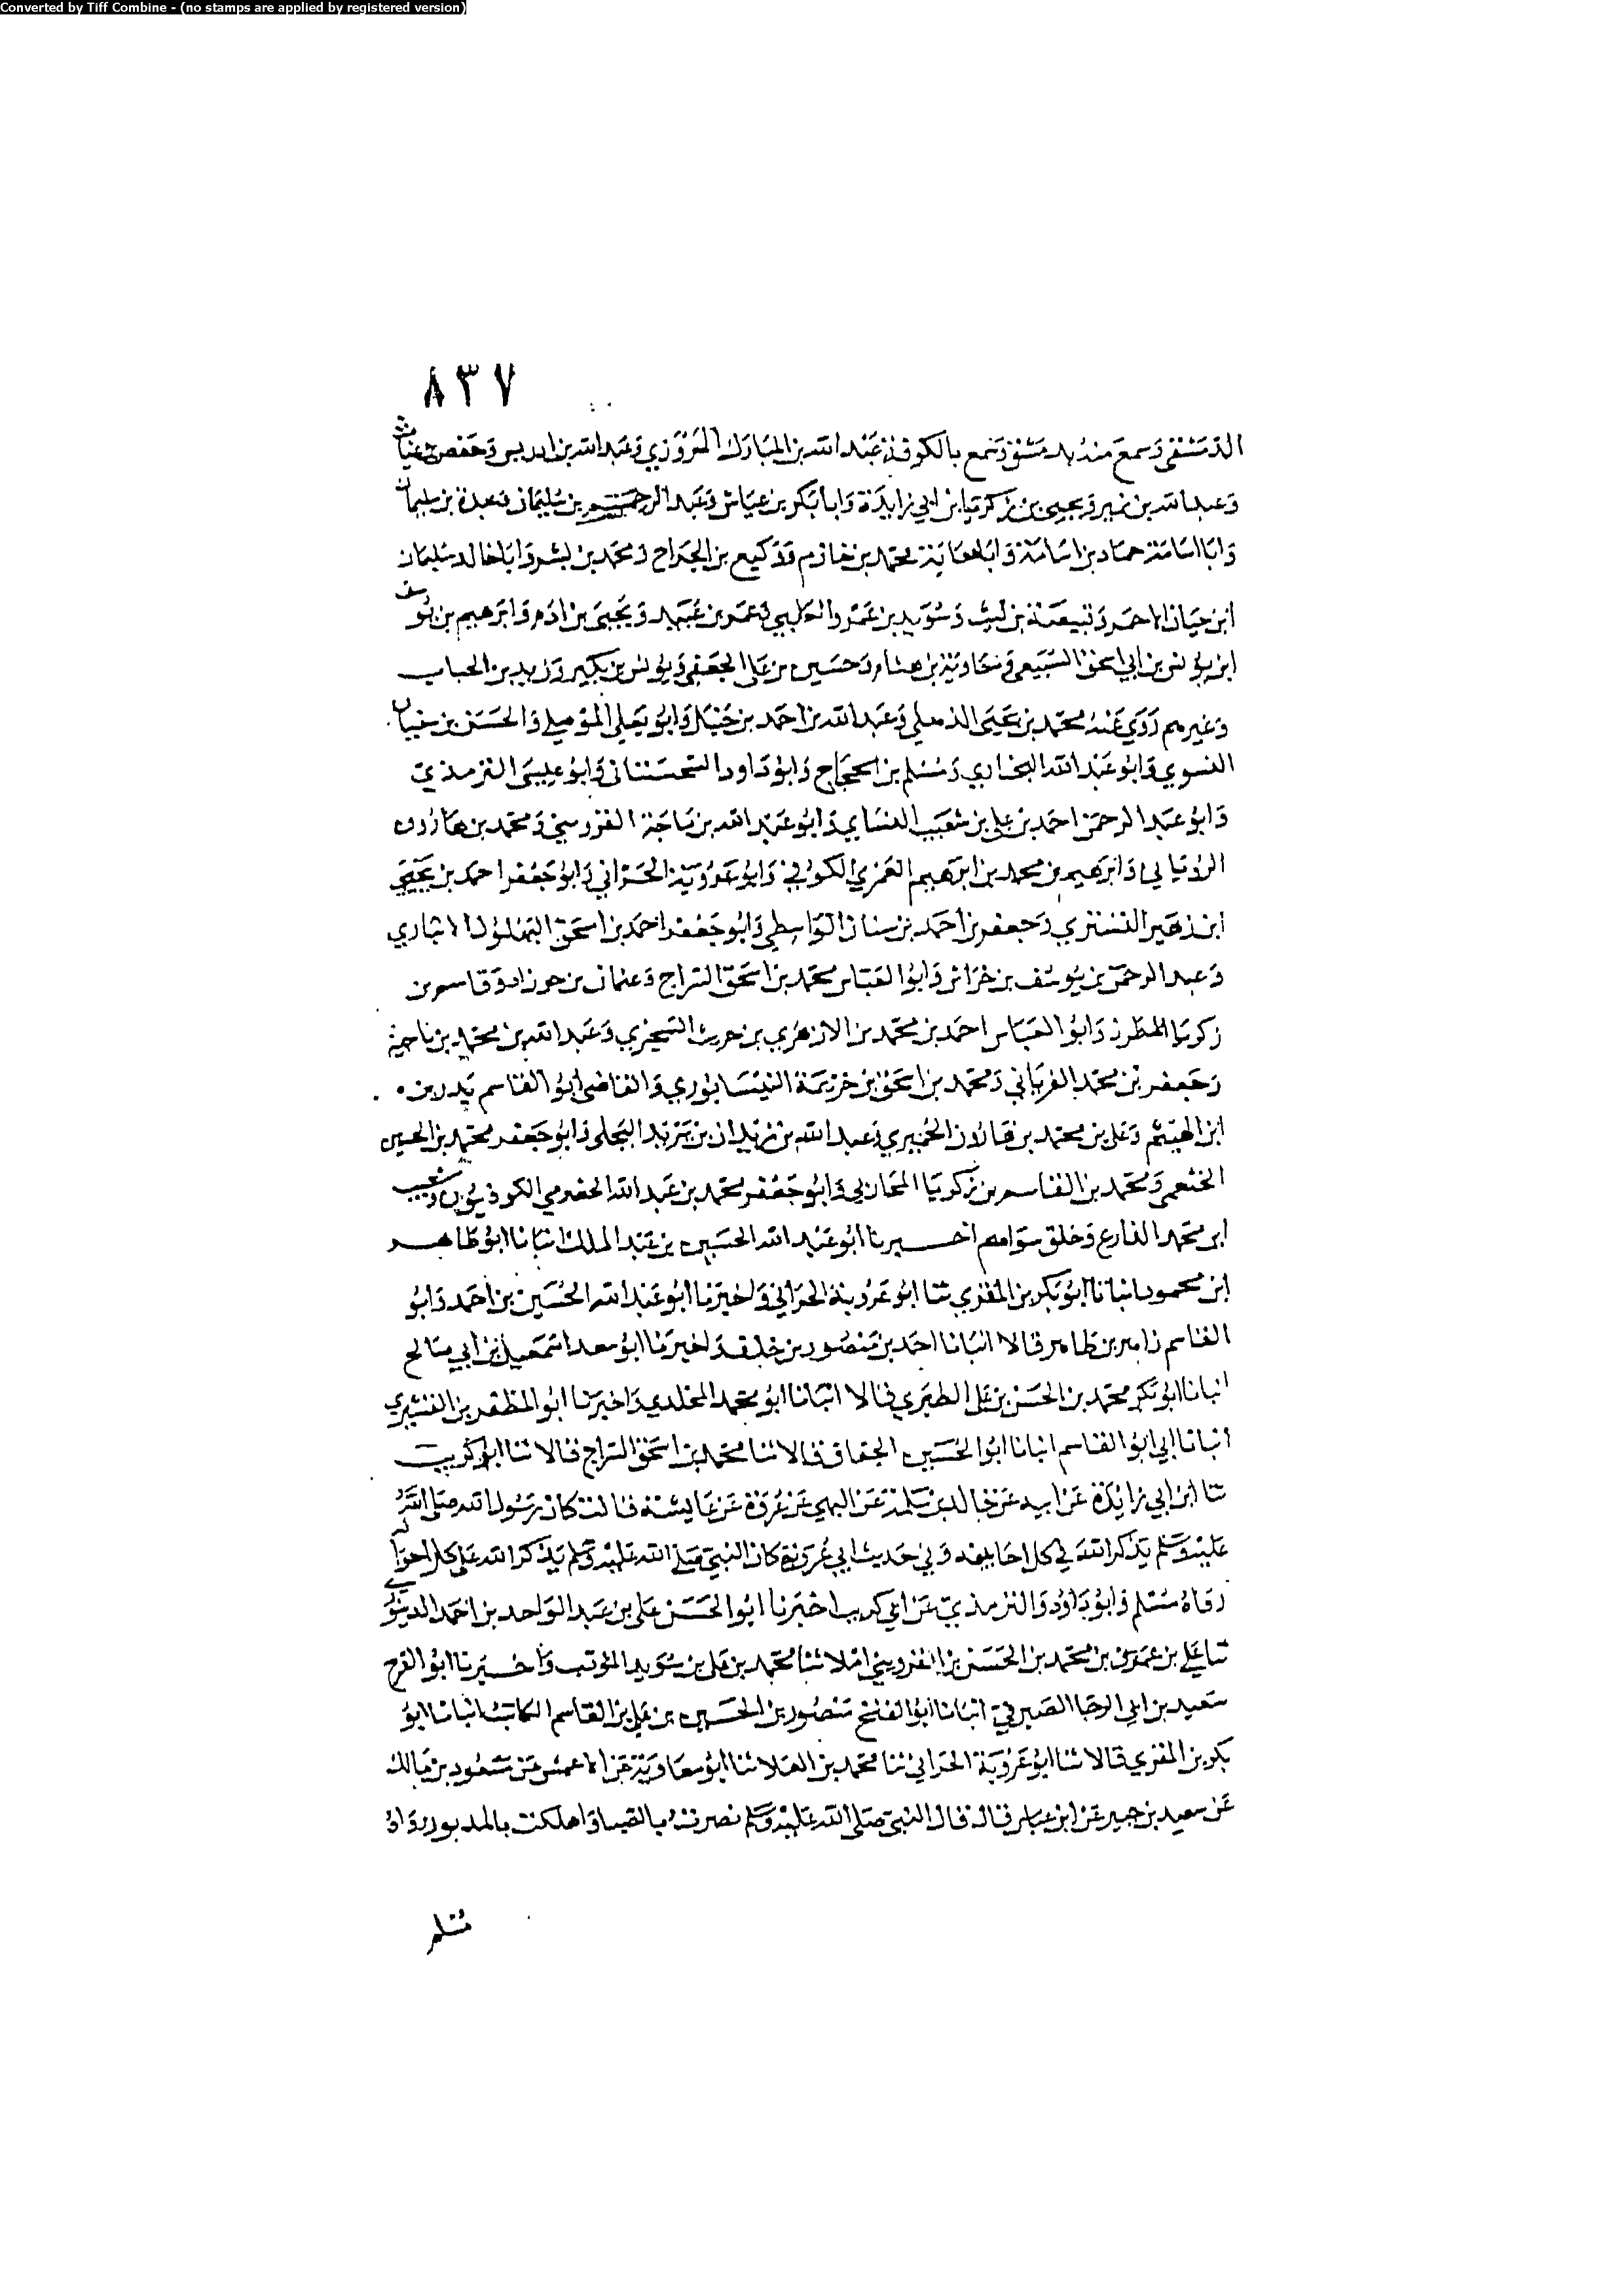 Converted by Tiff Combine - (no stamps are applied by registered version)
٨٣٧
الدمشقي وسمع منه بدمشق وسمع بالكوفة عبد الله بن المبارك المروزي وعبد الله بن ادريس وحفص بن غياث
وعبد الله بن نمير ويحيى بن زكريا ابن ابي زايدة وابا بكر بن عياش وعبد الرحيم بن سليمان وعبدة بن سليمان
وابا اسامة حماد بن اسامة وابا معاوية محمد بن خازم ووكيع بن الجراح ومحمد بن بشر وابا خالد سليمان
ابن حيان الاحمر وقبيصة بن ليث وسويد بن عمرو الكلبي وعمر بن عبيد ويحيى بن ادم وابرهيم بن يوسف
ابن يونس بن ابي اسحق السبيعي ومعاوية بن هشام وحسين بن علي الجعفي ويونس بن بكير وزيد بن الحباب
وغيرهم روي عنه محمد بن يحيى الذهلي وعبد الله بن احمد بن حنبل وابو يعلى الموصلي والحسن بن سفيان
النسوي وابو عبد الله البخاري ومسلم بن الحجاج وابو داود السجستاني وابو عيسى الترمذي
وابو عبد الرحمن احمد بن علي بن شعيب النسايي وابو عبد الله بن ماجة القزويني ومحمد بن هارون
الروياني وابرهيم بن محمد بن ابرهيم العمري الكوفي وابو عروبة الحراني وابو جعفر احمد بن يحيى
ابن زهير التستري وجعفر بن احمد بن سنان الواسطي وابو جعفر احمد بن اسحق البهلول الانباري
وعبد الرحمن بن يوسف بن خراش وابو العباس محمد بن اسحق السراج وعثمان بن خرزاد وقاسم بن
زكريا المطرز وابو العباس احمد بن محمد بن الازهري بن حريث السجزي وعبد الله بن محمد بن ناجية
وجعفر بن محمد الفريابي ومحمد بن اسحق بن خزيمة النيسابوري والقاضي ابو القاسم بدر بن
ابن الهيثم وعلي بن محمد بن هارون الحميري وعبد الله بن زيدان بن يزيد البجلي وابو جعفر محمد بن الحسين
الخثعمي ومحمد بن القاسم بن زكريا المحاربي وابو جعفر محمد بن عبد الله الحضرمي الكوفيون وشعيب
ابن محمد الذارع وخلق سواهم اخبرنا ابو عبد الله الحسين بن عبد الملك انبانا ابو طاهر
ابن محمود انبانا ابو بكر بن المقري ثنا ابو عروبة الحراني واخبرنا ابو عبد الله الحسين بن احمد وابو
القاسم زاهر بن طاهر قالا انبانا احمد بن منصور بن خلف واخبرنا ابو سعد اسمعيل بن ابي صالح
انبانا ابو بكر محمد بن الحسن بن علي الطبري قالا انبانا ابو محمد المخلدي واخبرنا ابو المظفر بن القشيري
انبانا ابي ابو القاسم انبانا ابو الحسين الخفاف قالا ثنا محمد بن اسحق السراج قالا ثنا ابو كريب
ثنا ابن ابي زايدة عن ابيه عن خالد بن سلمة عن البهي عن عروة عن عايشة قالت كان رسول الله صلى الله
عليه وسلم يذكر الله في كل احايينه وفي حديث ابي عروبة كان النبي صلى الله عليه وسلم يذكر الله على كل احواله
رواه مسلم وابو داود والترمذي عن ابي كريب اخبرنا ابو الحسن علي بن عبد الواحد بن احمد الدينوري
ثنا علي بن عمر بن محمد بن الحسن بن القزويني املا ثنا محمد بن علي بن سويد المؤدب واخبرنا ابو الفرج
سعيد بن ابي الرجا الصيرفي انبانا ابو الفتح منصور بن الحسين بن علي بن القاسم الكاتب انبانا ابو
بكر بن المقري قالا ثنا ابو عروبة الحراني ثنا محمد بن العلا ثنا ابو معاوية عن الاعمش عن مسعود بن مالك
عن سعيد بن جبير عن ابن عباس قال قال النبي صلى الله عليه وسلم نصرت بالصبا واهلكت عاد بالدبور رواه
مسلم